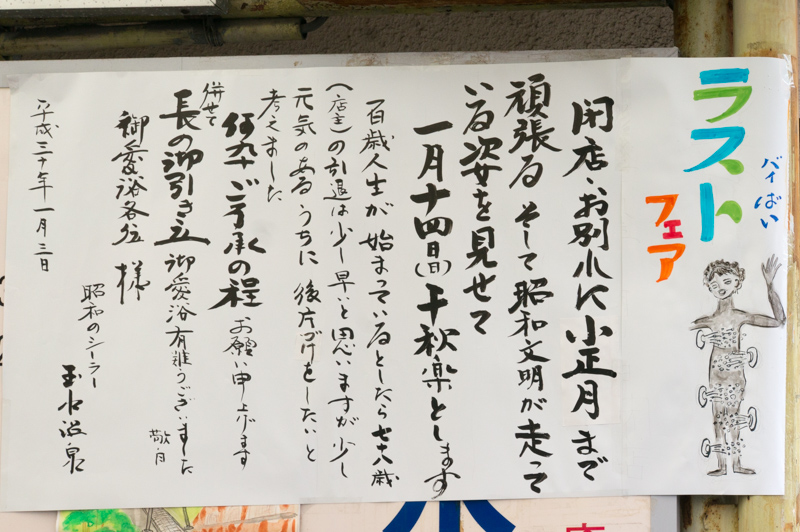 ラスト
バイばい
フェア
閉店・お別れに小正月まで
頑張る そして昭和文明が走って
いる姿を見せて
一月十四日(日)千秋楽とします
百歳人生が始まっているとしたら七八歳
(店主)の引退は少し早いと思いますが少し
元気のあるうちに後片づけをしたいと
考えました
何卒ご了承の程お願い申上げます
併せて
長の御引き立御愛浴有難うございました
敬白
御愛浴各位 様
昭和のシーラー
玉水温泉
平成三十年一月三日